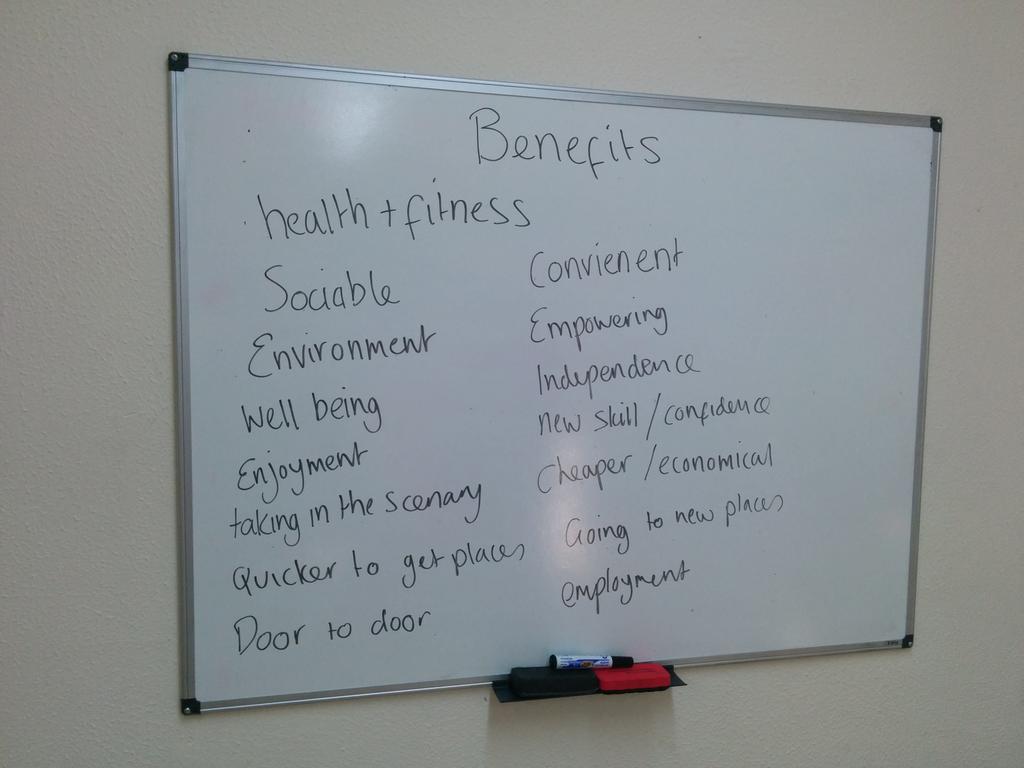 Benefits
health + fitness
Sociable
Environment
Well being
Enjoyment
taking in the scenary
Quicker to get places
Door to door
Convienent
Empowering
Independence
new skill / confidence
Cheaper / economical
Going to new places
employment